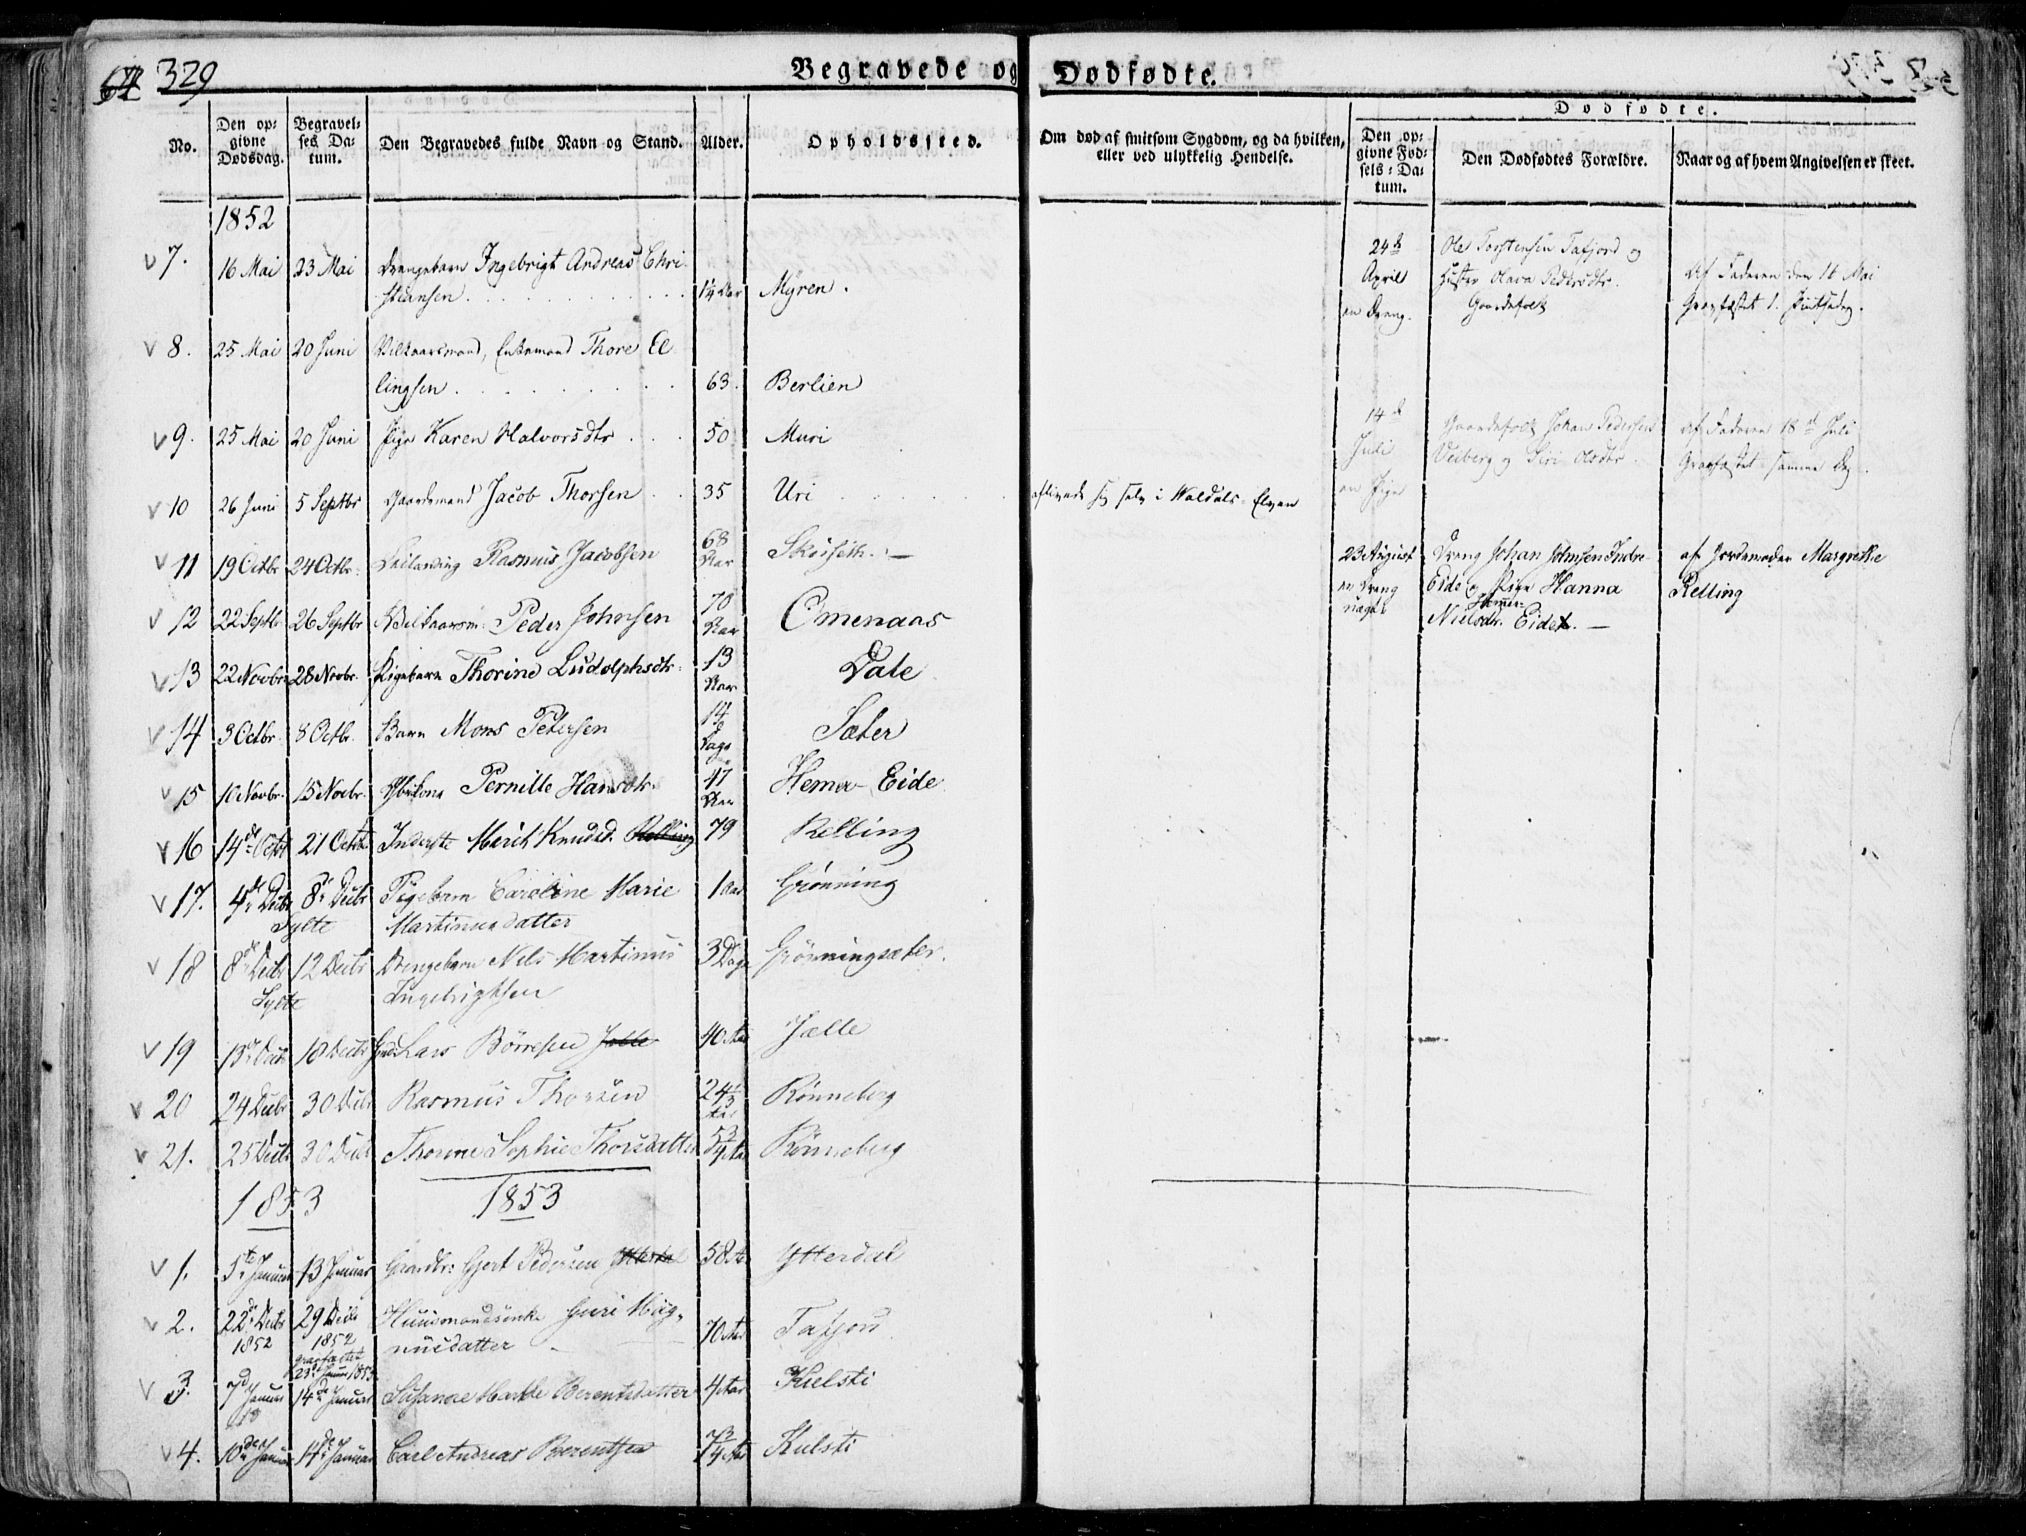 329
Begravede og Dødfødte.
No.
Den op-
givne
Dødsdag.
Begravel-
ses Da-
tum.
Den Begravedes fulde Navn og Stand.
Alder.
Opholdssted.
Om død af smitsom Sygdom, og da hvilken,
eller ved ulykkelig Hendelse.
Dødfødte.
Den op-
givne Fød-
sels-Da-
tum.
Den Dødfødtes Forældre.
Naar og af hvem Angivelsen er skeet.
1852
7. 16 Mai 23 Mai Drengebarn Ingebrigt Andreas Chri-
stiansen Myren.
8. 25 Mai 20 Juni Vilkaarsmand, Enkemand Thore El-
lingsen 63. Berlien
9. 25 Mai 20 Juni Pige Karen Halvorsdtr 50 Muri
10 26 Juni 5 Septbr Gaardemand Jacob Thorsen 35 Uri aflivede sig selv i Waldals-Elven
11 19 Octbr 24 Octbr. Rasmus Jacobsen 68 Aar
12 22 Septbr 26 Septbr Vilkaarsm: Peder Johnsen 70 Aar Omenaas
13 22 Novbr 28 Novbr. Pigebarn Thorine Ludolphsdtr. 13 Aar Dale
14 3 Octbr. 8 Octbr. Barn Mons Petersen 14 Dage Sæter
15 10 Novbr. 15 Novbr. Pernille Hansdtr. 47 Aar Eide
16 14de Octbr 21 Octbr Inderste Marit Knudsd. Relling 79 Relling
17. 4de Decbr 8de Decbr Pigebarn Caroline Marie 1 Aar Grønning
Sylte Martinusdatter
18 8de Decbr 12 Decbr Drengebarn Nils Martinus 3 Dage Grønningsæter.
Sylte Ingebrigtsen
19 13de Decbr 18 Decbr Lars Børresen Jælle 40 Aar Jælle
20 24 Decbr 30 Decbr Rasmus Thorsen Rønneberg
21. 25 Decbr 30 Decbr Thorine Sophie Thorsdatter Rønneberg
1853 1853
1. 5te Januar 13 Januar Gaardbr: Gjert Pedersen Ytterdal 58 Ytterdal
2. 22de Decbr 29 Decbr Huusmandsenke Guri Mag-
1852 1852 nusdatter 70 Aar Tafjord
gravfæstet
23de Januar 1853
3. 7de Januar 14de Januar Berentsdatter 4 Aar Kulsti
4. 10de Januar 14de Januar Carl Andreas Berentsen Kulsti
24de
April
en Dreng.
Ole Torstensen Tafjord og
Hustru Olava Pedersdtr.
Gaardefolk
Af Faderen den Mai
Gravfæstet 1. Pintsedag.
14de
Juli
en Pige
Gaardefolk Johan Pedersen
Veiberg og Siri Olsdtr.
af Faderen 18de Juli
Gravfæstet samme Dag.
23 August
en Dreng
uægte
Dreng Johan Johnsen Indre-
Eide og Pige Hanna
Nielsdtr. Eidet.
af Jordemoder Margrethe
Relling